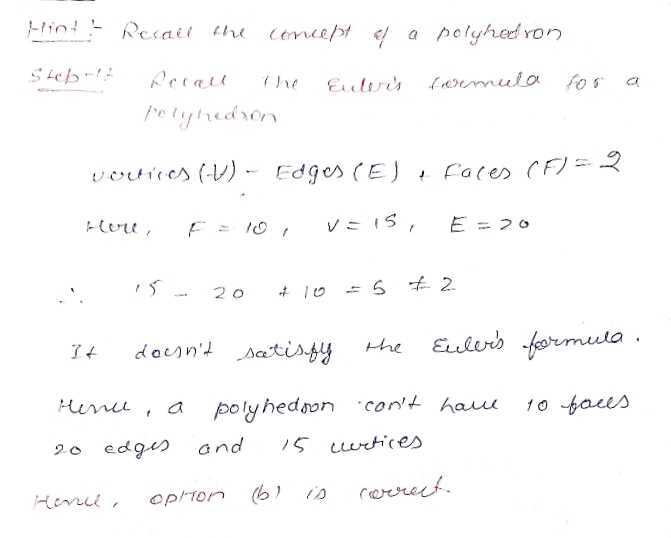 Hint :- Recall the concept of a polyhedron
Step-1: Recall the Euler's formula for a
Polyhedron
vertices (V) - Edges (E) + Faces (F) = 2
Here, F = 10, V = 15, E = 20
∴ 15 - 20 + 10 = 5 ≠ 2
It doesn't satisfy the Euler's formula.
Hence, a polyhedron can't have 10 faces
20 edges and 15 vertices
Hence, option (b) is correct.